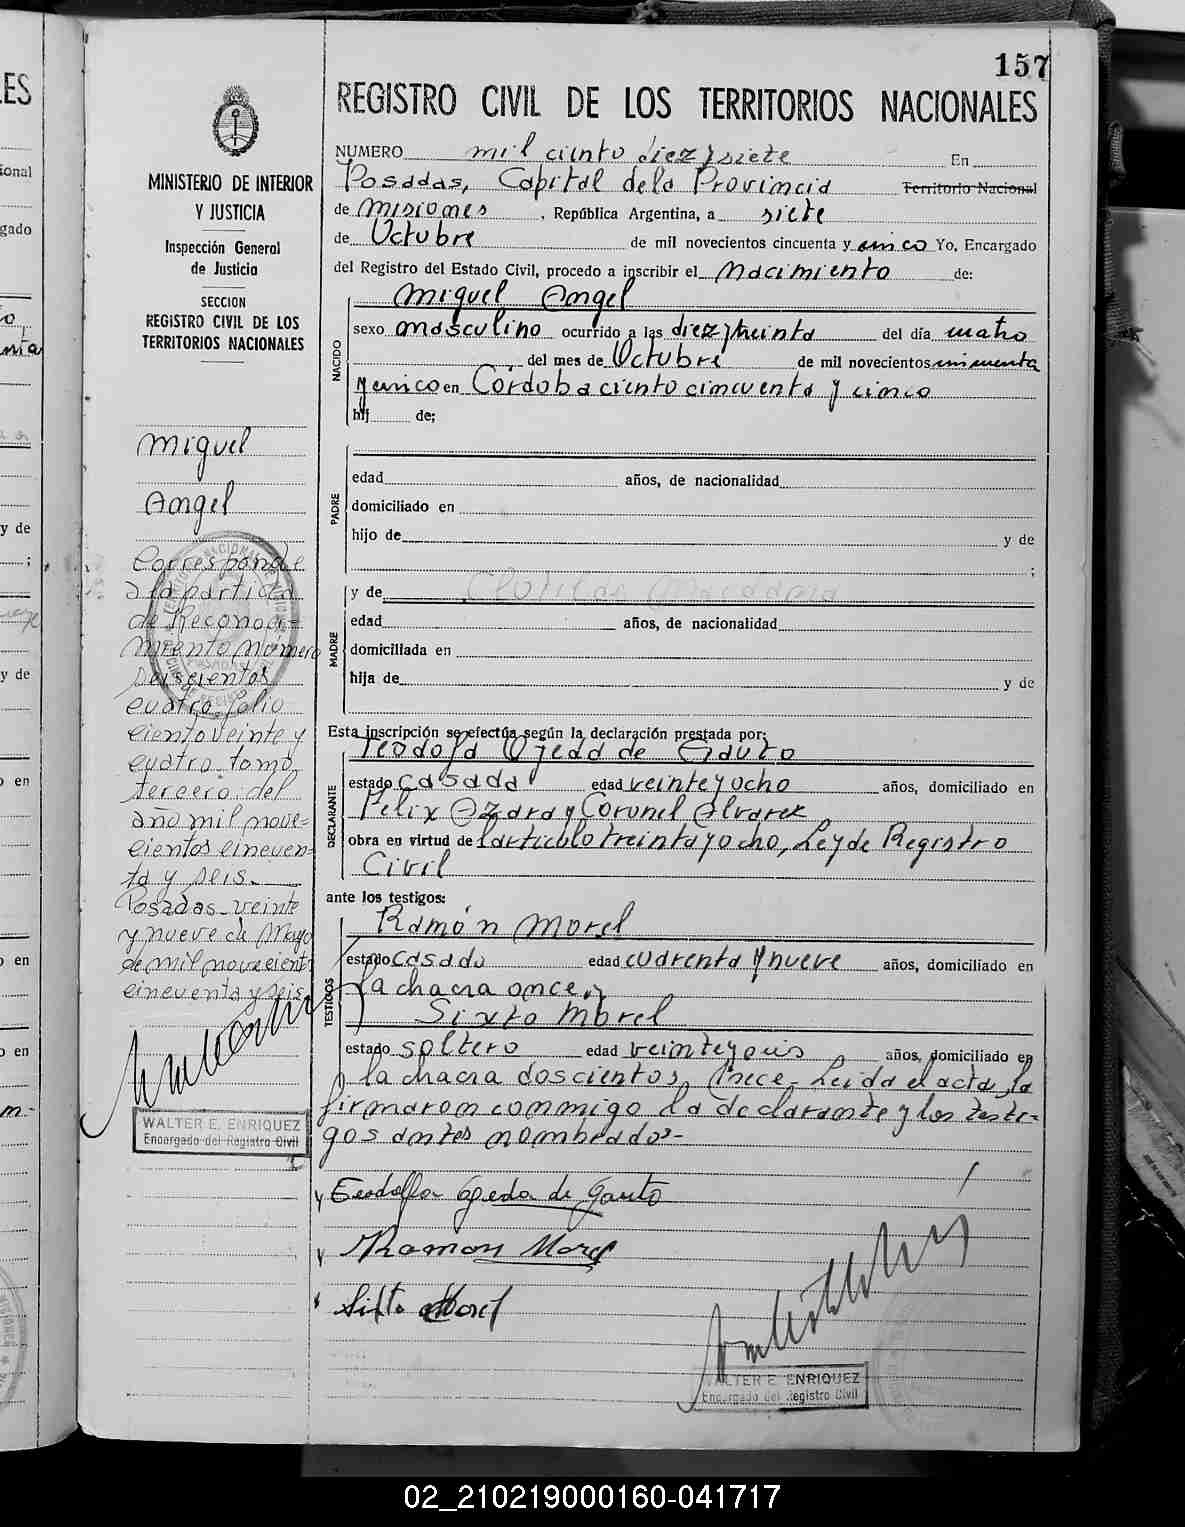 157
REGISTRO CIVIL DE LOS TERRITORIOS NACIONALES
MINISTERIO DE INTERIOR
Y JUSTICIA
Inspección General
de Justicia
SECCION
REGISTRO CIVIL DE LOS
TERRITORIOS NACIONALES
NUMERO mil ciento diez y siete En
Posadas, Capital de la Provincia Territorio Nacional
de Misiones, República Argentina, a siete
de Octubre de mil novecientos cincuenta y cinco Yo, Encargado
del Registro del Estado Civil, procedo a inscribir el Nacimiento de:
NACIDO
Miguel Angel
sexo masculino ocurrido a las diez y treinta del día cuatro
del mes de Octubre de mil novecientos cincuenta
y cinco en Córdoba ciento cincuenta y cinco
hij de;
PADRE
edad años, de nacionalidad
domiciliado en
hijo de y de
;
MADRE
y de Clotilde
edad años, de nacionalidad
domiciliada en
hija de y de
Esta inscripción se efectúa según la declaración prestada por:
DECLARANTE
Teodofa Ojeda de Gauto
estado casada edad veinte y ocho años, domiciliado en
Felix Azara y Coronel Alvarez
obra en virtud del artículo treinta y ocho, Ley de Registro
Civil
ante los testigos:
TESTIGOS
Ramón Morel
estado casado edad cuarenta y nueve años, domiciliado en
la chacra once, y
Sixto Morel
estado soltero edad veinte y seis años, domiciliado en
la chacra doscientos trece - Leida el acta, la
firmaron conmigo la declarante y los testi-
gos antes nombrados-
Teodolfa Ojeda de Gauto
Ramon Morel
Sixto Morel
WALTER E. ENRIQUEZ
Encargado del Registro Civil
Miguel
Angel
Corresponde
a la partida
de Reconoci-
miento número
seiscientos
cuatro, folio
ciento veinte y
cuatro, tomo
tercero del
año mil nove-
cientos cincuen-
ta y seis.
Posadas, veinte
y nueve de Mayo
de mil novecientos
cincuenta y seis
WALTER E. ENRIQUEZ
Encargado del Registro Civil
02_210219000160-041717